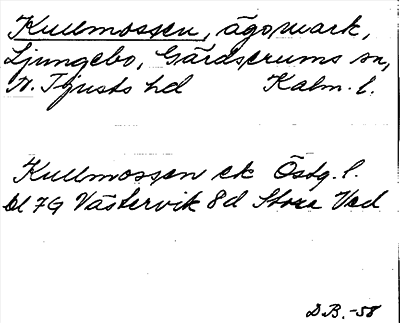 Kullmossen, ägomark,
Ljungebo, Gärdserums sn,
N. Tjusts hd Kalm. l.
Kullmossen ek Östg. l.
bl 7G Västervik 8d Stora Vad
D.B. -58